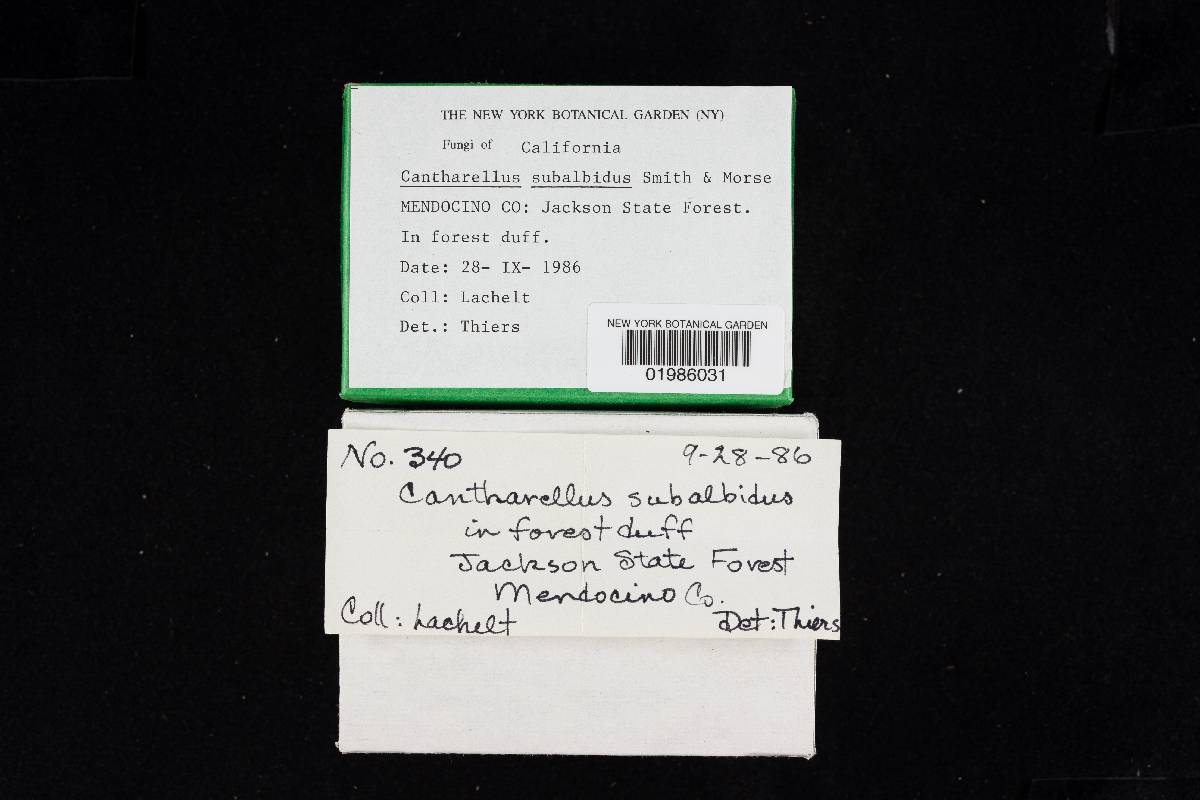 THE NEW YORK BOTANICAL GARDEN (NY)
Fungi of California
Cantharellus subalbidus Smith & Morse
MENDOCINO CO: Jackson State Forest.
In forest duff.
Date: 28- IX- 1986
Coll: Lachelt
Det.: Thiers
NEW YORK BOTANICAL GARDEN
01986031
No. 340 9-28-86
Cantharellus subalbidus
in forest duff
Jackson State Forest
Mendocino Co.
Coll: Lachelt Det: Thiers